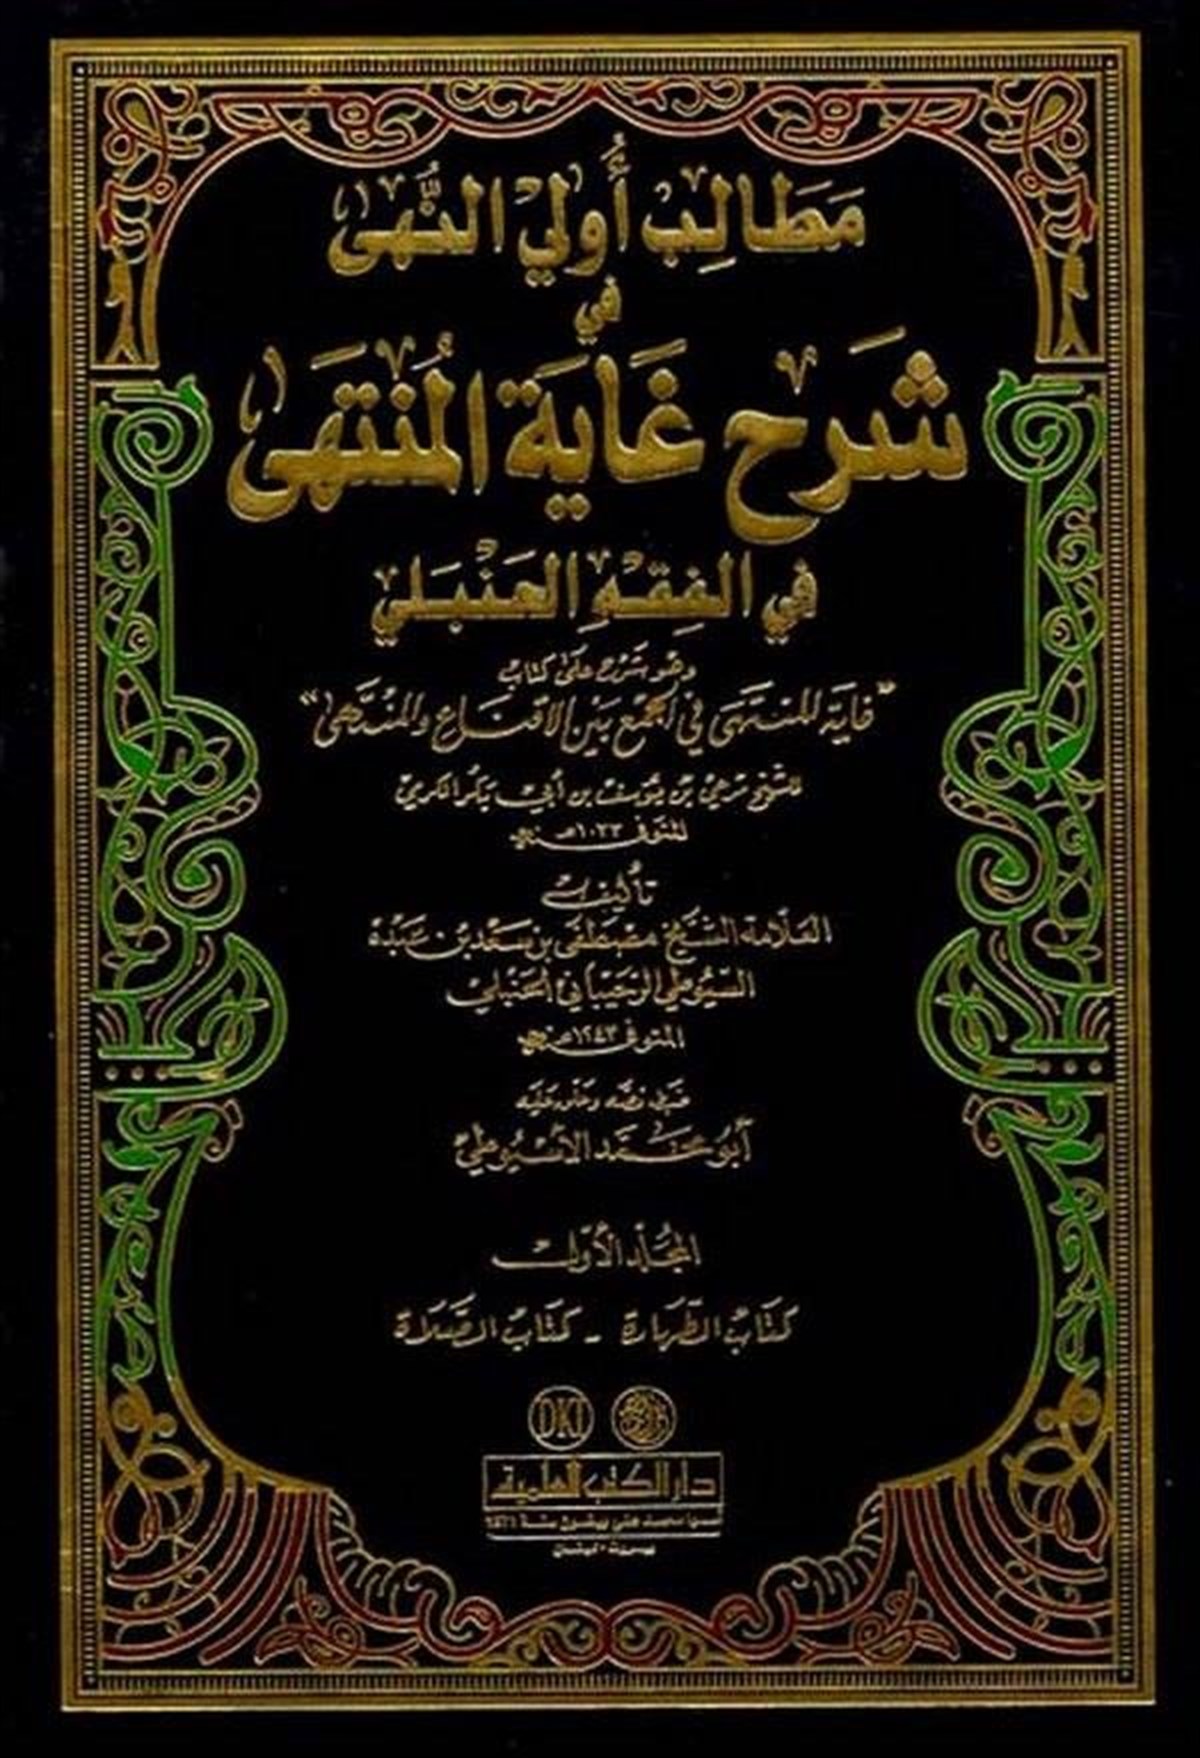 مَطَالِب أُولي النُّهى
في
شَرح غَايَة المُنتَهَى
في الفِقهِ الحَنبَلي
وهو شَرح عَلى كتاب
"غاية المنتهى في الجمع بين الاقناع والمنتهى"
للشيخ مرعي بن يوسف بن أبي بكر الكرمي
المتوفى ١٠٣٣ هـ
تأليف
العلامة الشيخ مصطفى بن سعد بن عبده
السيوطي الرحيباني الحنبلي
المتوفى ١٢٤٣ هـ
ضبط نصه وعلق عليه
أبو محمد الأسيوطي
المجلد الأول
كتاب الطهارة - كتاب الصلاة
DKI
دار الكتب العلمية
أسسها محمد علي بيضون سنة 1971
بيروت - لبنان